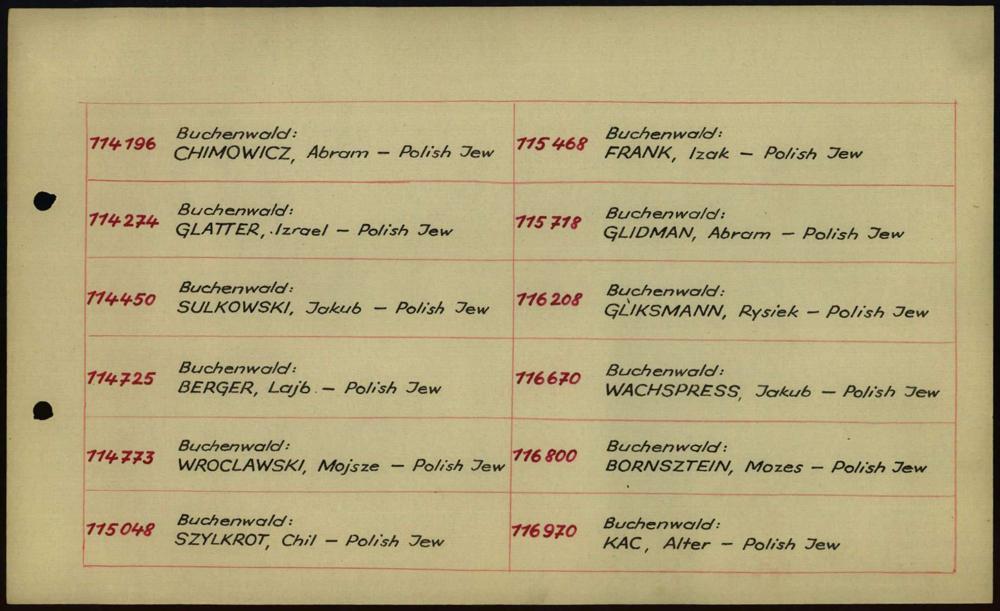 114196 Buchenwald:
CHIMOWICZ, Abram – Polish Jew
114274 Buchenwald:
GLATTER, Izrael – Polish Jew
114450 Buchenwald:
SULKOWSKI, Jakub – Polish Jew
114725 Buchenwald:
BERGER, Lajb – Polish Jew
114773 Buchenwald:
WROCLAWSKI, Mojsze – Polish Jew
115048 Buchenwald:
SZYLKROT, Chil – Polish Jew
115468 Buchenwald:
FRANK, Izak – Polish Jew
115718 Buchenwald:
GLIDMAN, Abram – Polish Jew
116208 Buchenwald:
GLIKSMANN, Rysiek – Polish Jew
116670 Buchenwald:
WACHSPRESS, Jakub – Polish Jew
116800 Buchenwald:
BORNSZTEIN, Mozes – Polish Jew
116970 Buchenwald:
KAC, Alter – Polish Jew